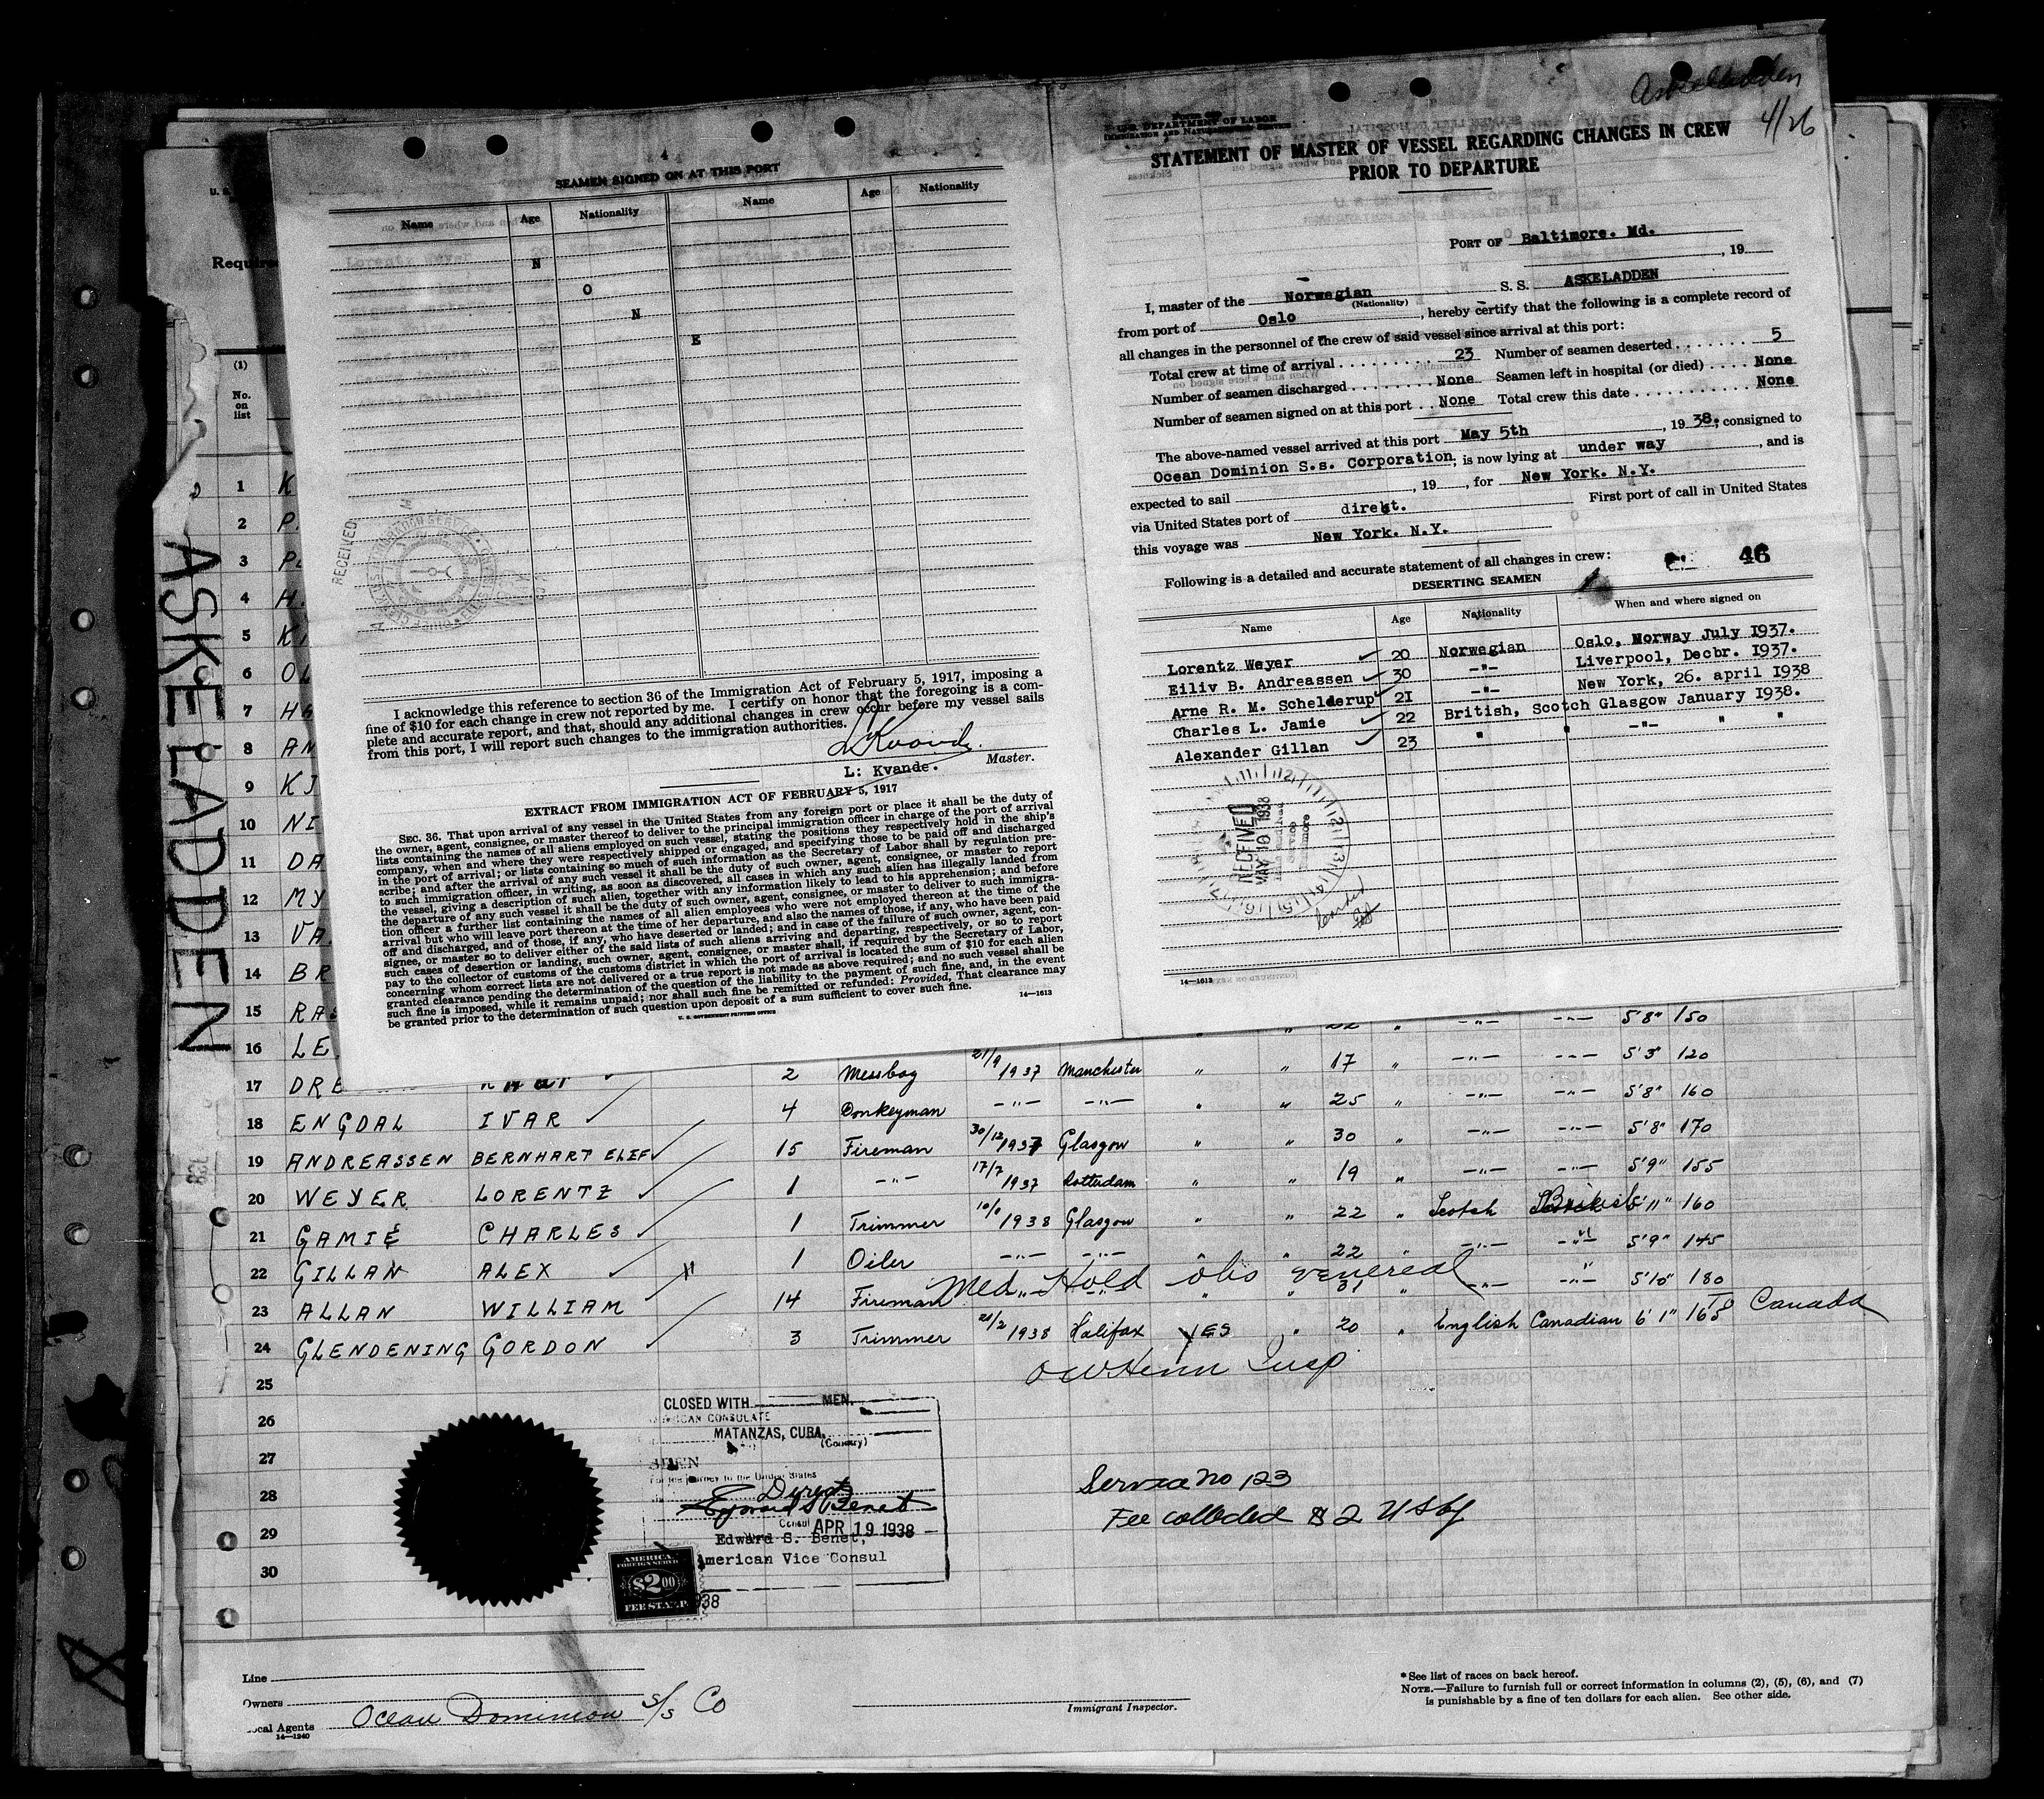 Askeladden
4/26
4
SEAMEN SIGNED ON AT THIS PORT
Name Age Nationality Name Age Nationality
N
O
N
E
RECEIVED
I acknowledge this reference to section 36 of the Immigration Act of February 5, 1917, imposing a
fine of $10 for each change in crew not reported by me. I certify on honor that the foregoing is a com-
plete and accurate report, and that, should any additional changes in crew occur before my vessel sails
from this port, I will report such changes to the immigration authorities.
L Kvande.
L: Kvande. Master.
EXTRACT FROM IMMIGRATION ACT OF FEBRUARY 5, 1917
SEC. 36. That upon arrival of any vessel in the United States from any foreign port or place it shall be the duty of
the owner, agent, consignee, or master thereof to deliver to the principal immigration officer in charge of the port of arrival
lists containing the names of all aliens employed on such vessel, stating the positions they respectively hold in the ship's
company, when and where they were respectively shipped or engaged, and specifying those to be paid off and discharged
in the port of arrival; or lists containing so much of such information as the Secretary of Labor shall by regulation pre-
scribe; and after the arrival of any such vessel it shall be the duty of such owner, agent, consignee, or master to report
to such immigration officer, in writing, as soon as discovered, all cases in which any such alien has illegally landed from
the vessel, giving a description of such alien, together with any information likely to lead to his apprehension; and before
the departure of any such vessel it shall be the duty of such owner, agent, consignee, or master to deliver to such immigra-
tion officer a further list containing the names of all alien employees who were not employed thereon at the time of the
arrival but who will leave port thereon at the time of her departure, and also the names of those, if any, who have been paid
off and discharged, and of those, if any, who have deserted or landed; and in case of the failure of such owner, agent, con-
signee, or master so to deliver either of the said lists of such aliens arriving and departing, respectively, or so to report
such cases of desertion or landing, such owner, agent, consignee, or master shall, if required by the Secretary of Labor,
pay to the collector of customs of the customs district in which the port of arrival is located the sum of $10 for each alien
concerning whom correct lists are not delivered or a true report is not made as above required; and no such vessel shall be
granted clearance pending the determination of the question of the liability to the payment of such fine, and, in the event
such fine is imposed, while it remains unpaid; nor shall such fine be remitted or refunded: Provided, That clearance may
be granted prior to the determination of such question upon deposit of a sum sufficient to cover such fine.
U. S. GOVERNMENT PRINTING OFFICE
14—1613
U.S. DEPARTMENT OF LABOR
IMMIGRATION AND NATURALIZATION SERVICE
STATEMENT OF MASTER OF VESSEL REGARDING CHANGES IN CREW
PRIOR TO DEPARTURE
PORT OF Baltimore. Md.
, 19
I, master of the Norwegian S. S. ASKELADDEN
(Nationality)
from port of Oslo, hereby certify that the following is a complete record of
all changes in the personnel of the crew of said vessel since arrival at this port:
Total crew at time of arrival 23 Number of seamen deserted 5
Number of seamen discharged None Seamen left in hospital (or died) None
Number of seamen signed on at this port None Total crew this date None
The above-named vessel arrived at this port May 5th, 1938, consigned to
Ocean Dominion S.s. Corporation, is now lying at under way, and is
expected to sail , 19 , for New York. N.Y.
via United States port of direkt. First port of call in United States
this voyage was New York. N.Y.
Following is a detailed and accurate statement of all changes in crew: 46
DESERTING SEAMEN
Name Age Nationality When and where signed on
Lorentz Weyer 20 Norwegian Oslo, Norway July 1937.
Eiliv B. Andreassen 30 -"- Liverpool, Decbr. 1937.
Arne R. M. Schelderup 21 -"- New York, 26. april 1938
Charles L. Jamie 22 British, Scotch Glasgow January 1938.
Alexander Gillan 23 " " -"- " "
RECEIVED
MAY 10 1938
14—1613
ASKELADDEN
U. S.
Require
(1)
No. on list
1 K
2 P.
3 PE
4 H.
5 KI
6 OL
7 HA
8 AN
9 KJ
10 NI
11 DA
12 MY
13 VA
14 BR
15 RAS
16 LE
22 " -"- -"- 5'8" 150
17 DRE
2 Messboy 21/9 1937 Manchester " " 17 " -"- -"- 5'3" 120
18 ENGDAL IVAR 4 Donkeyman -"- -"- " " 25 " -"- -"- 5'8" 160
19 ANDREASSEN BERNHART ELIF 15 Fireman 30/12 1937 Glasgow " " 30 " -"- -"- 5'8" 170
20 WEYER LORENTZ 1 -"- 17/7 1937 Rotterdam " " 19 " -"- -"- 5'9" 155
21 GAMIE CHARLES 1 Trimmer 1938 Glasgow " " 22 " Scotch British 160
22 GILLAN ALEX 1 Oiler -"- -"- " " 22 " -"- -"- 5'9" 145
23 ALLAN WILLIAM 14 Fireman -"- -"- " " 31 " -"- -"- 5'10" 180
Med. Hold venereal
24 GLENDENING GORDON 3 Trimmer 21/2 1938 Halifax YES " 20 " English Canadian 6'1" 168 Canada
25
26
27
28
29
30
CLOSED WITH MEN.
AMERICAN CONSULATE
MATANZAS, CUBA.
(Country)
SEEN
For the journey to the United States
Direct
Edward S. Benet
Consul APR 19 1938
Edward S. Benet,
American Vice Consul
AMERICAN
FOREIGN SERVICE
$2.00
FEE STAMP
938
Service No 123
Fee collected $2 US
Line
Owners
Local Agents Ocean Dominion S/S Co
14—1240
Immigrant Inspector.
*See list of races on back hereof.
NOTE.—Failure to furnish full or correct information in columns (2), (5), (6), and (7)
is punishable by a fine of ten dollars for each alien. See other side.